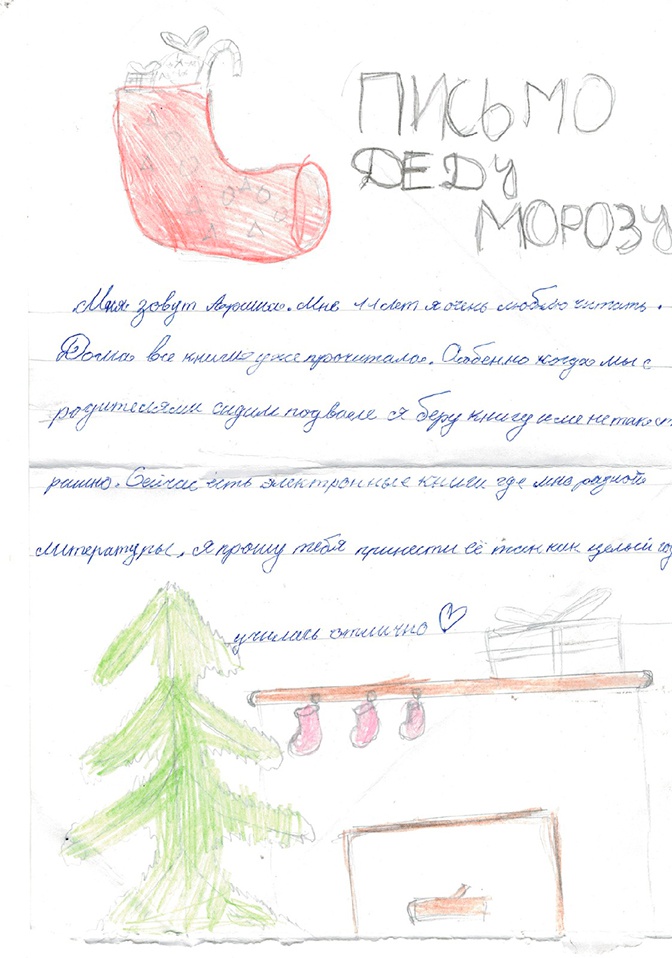 ПИСЬМО
ДЕДУ
МОРОЗУ
Меня зовут Аришка. Мне 11 лет я очень люблю читать.
Дома все книги уже прочитала. Особенно когда мы с
родителями сидим подвале я беру книгу и мне не так ст
рашно. Сейчас есть электронные книги где мно разной
литературы, я прошу тебя принести её так как целый год
училась отлично